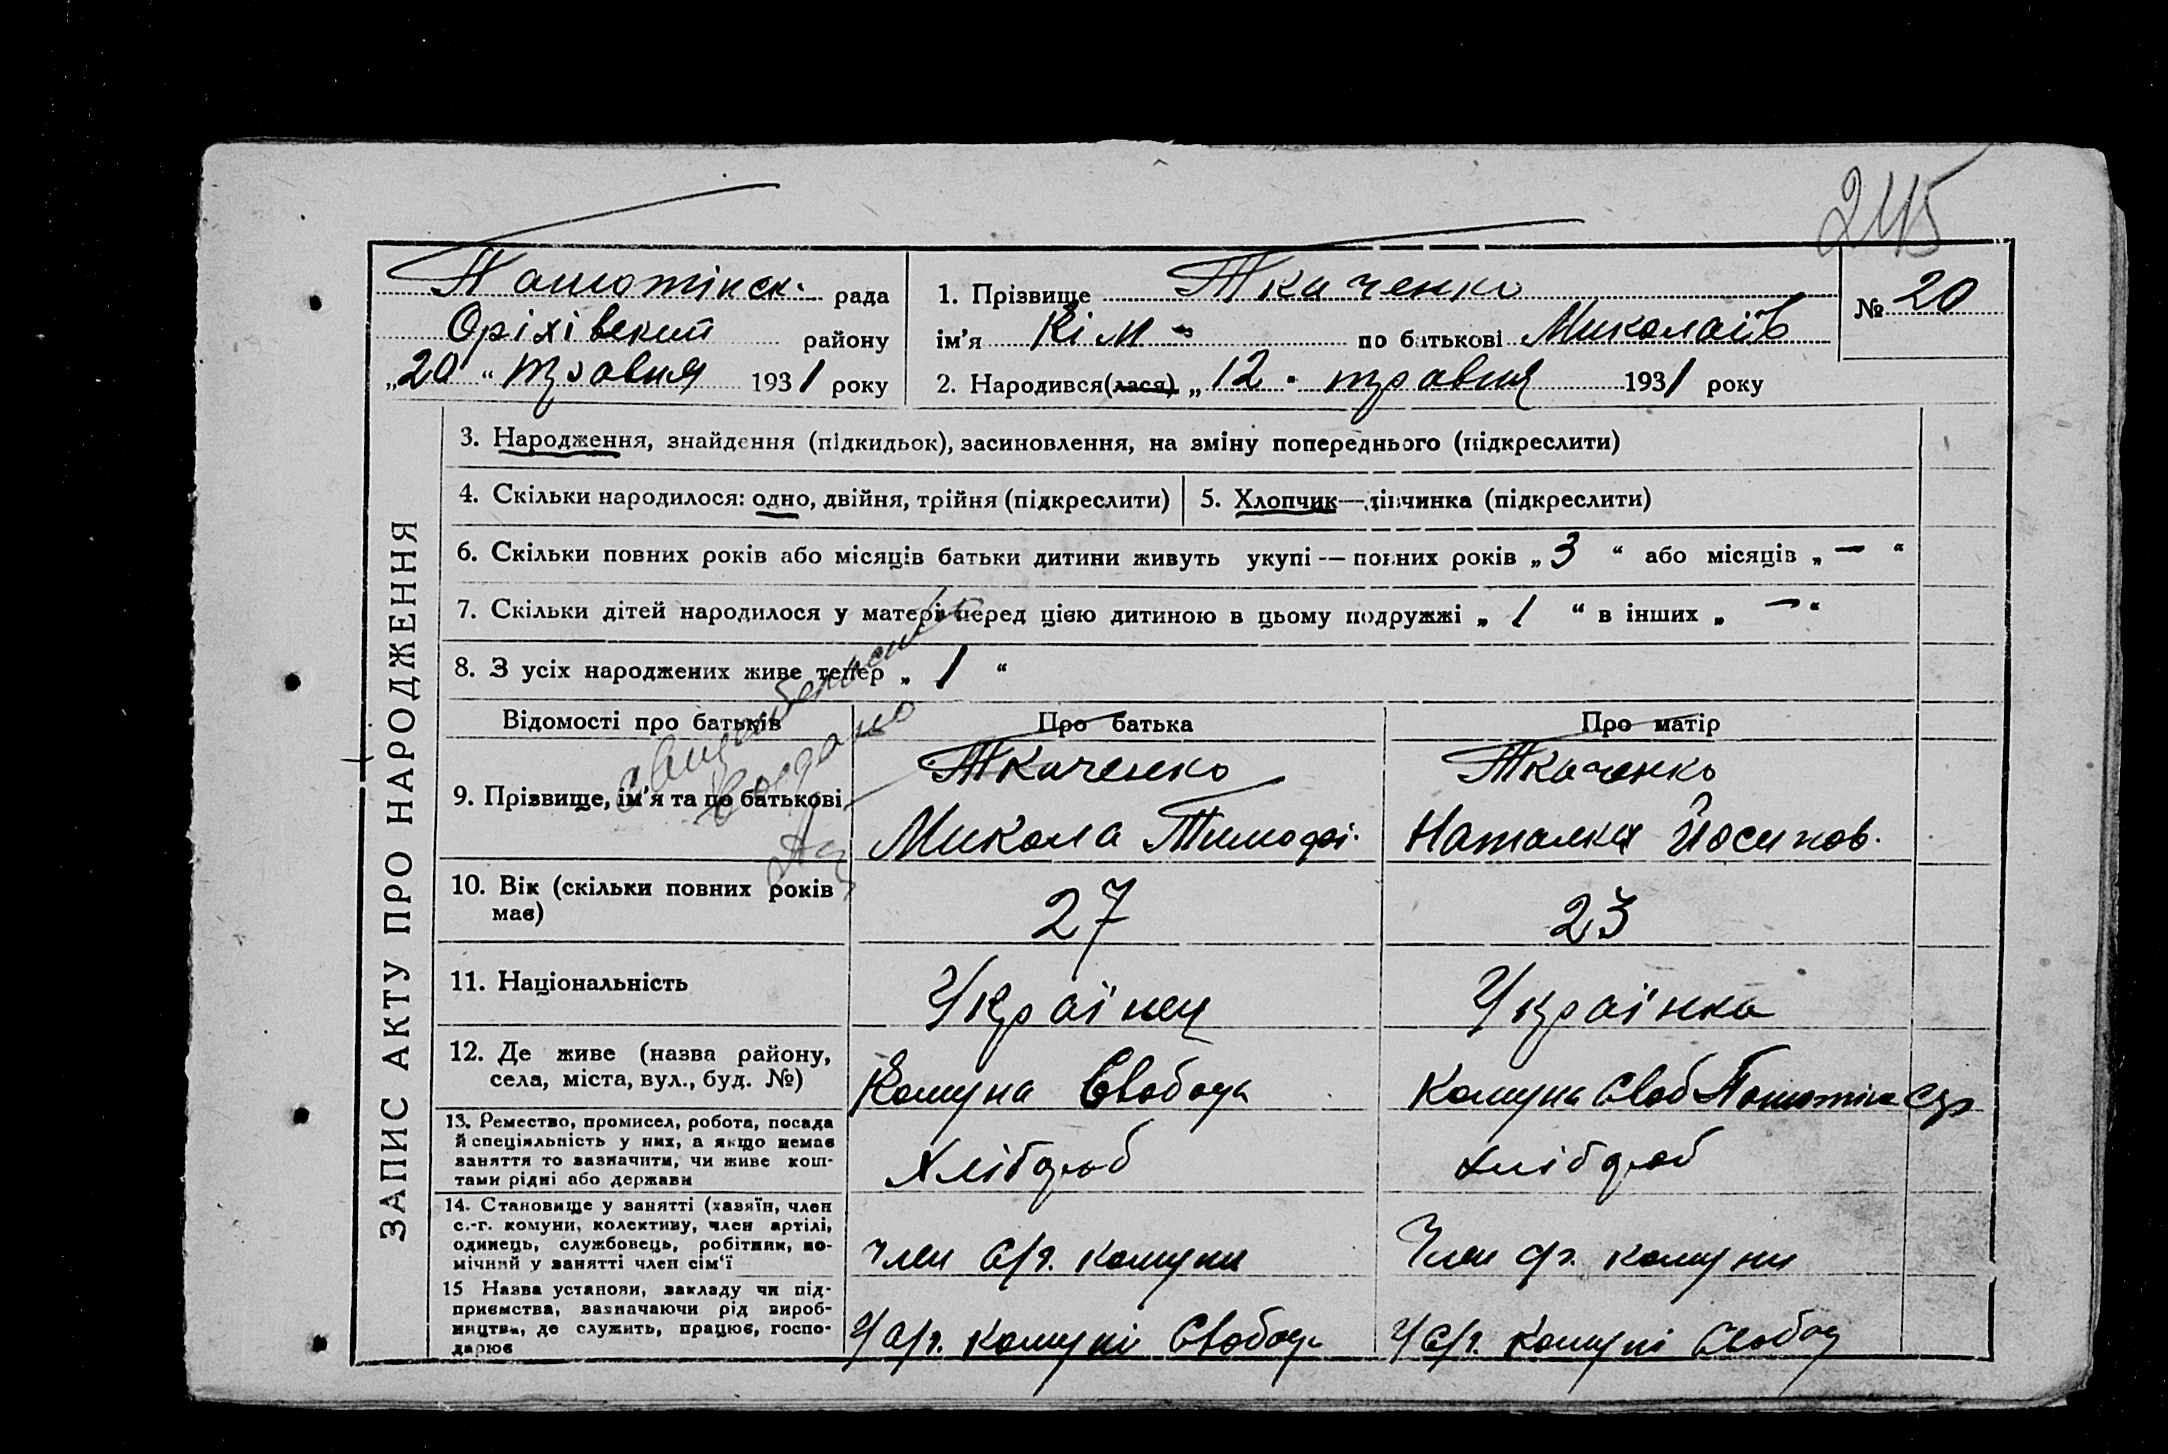 245
Ткаченко
рада 1. Прізвище
№ 20
Оріхівский району ім'я Кім по батькові Миколаїв
„20“ травня 1931 року 2. Народився(лася) „12“ травня 1931 року
ЗАПИС АКТУ ПРО НАРОДЖЕННЯ
3. Народження, знайдення (підкидьок), засиновлення, на зміну попереднього (підкреслити)
4. Скільки народилося: одно, двійня, трійня (підкреслити) 5. Хлопчик—дівчинка (підкреслити)
6. Скільки повних років або місяців батьки дитини живуть укупі — повних років „3“ або місяців „—“
7. Скільки дітей народилося у матері перед цією дитиною в цьому подружжі „1“ в інших „—“
8. З усіх народжених живе тепер „1“
Відомості про батьків Про батька Про матір
Ткаченко Ткаченко
9. Прізвище, ім'я та по батькові
Микола Тимофі. Наталка Йосипов.
10. Вік (скільки повних років має) 27 23
11. Національність Українец Українка
12. Де живе (назва району,
села, міста, вул., буд. №) Комуна Свобода Комуна Своб
13. Ремество, промисел, робота, посада
й спеціяльність у них, а якщо немає
заняття то зазначити, чи живе кош-
тами рідні або держави
Хлібороб Хлібороб
14. Становище у занятті (хазяїн, член
с.-г. комуни, колективу, член артілі,
одинець, службовець, робітник, по-
мічний у занятті член сім'ї
член с/г. комуни Член с/г. комуни
15 Назва установи, закладу чи під-
приємства, зазначаючи рід вироб-
ництва, де служить, працює, госпо-
дарює
У с/г. комуні Свобода У с/г. комуні Свобод